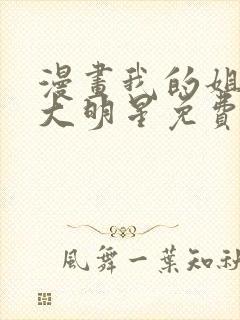 漫畫我的姐
大明星免費
風舞一葉知秋